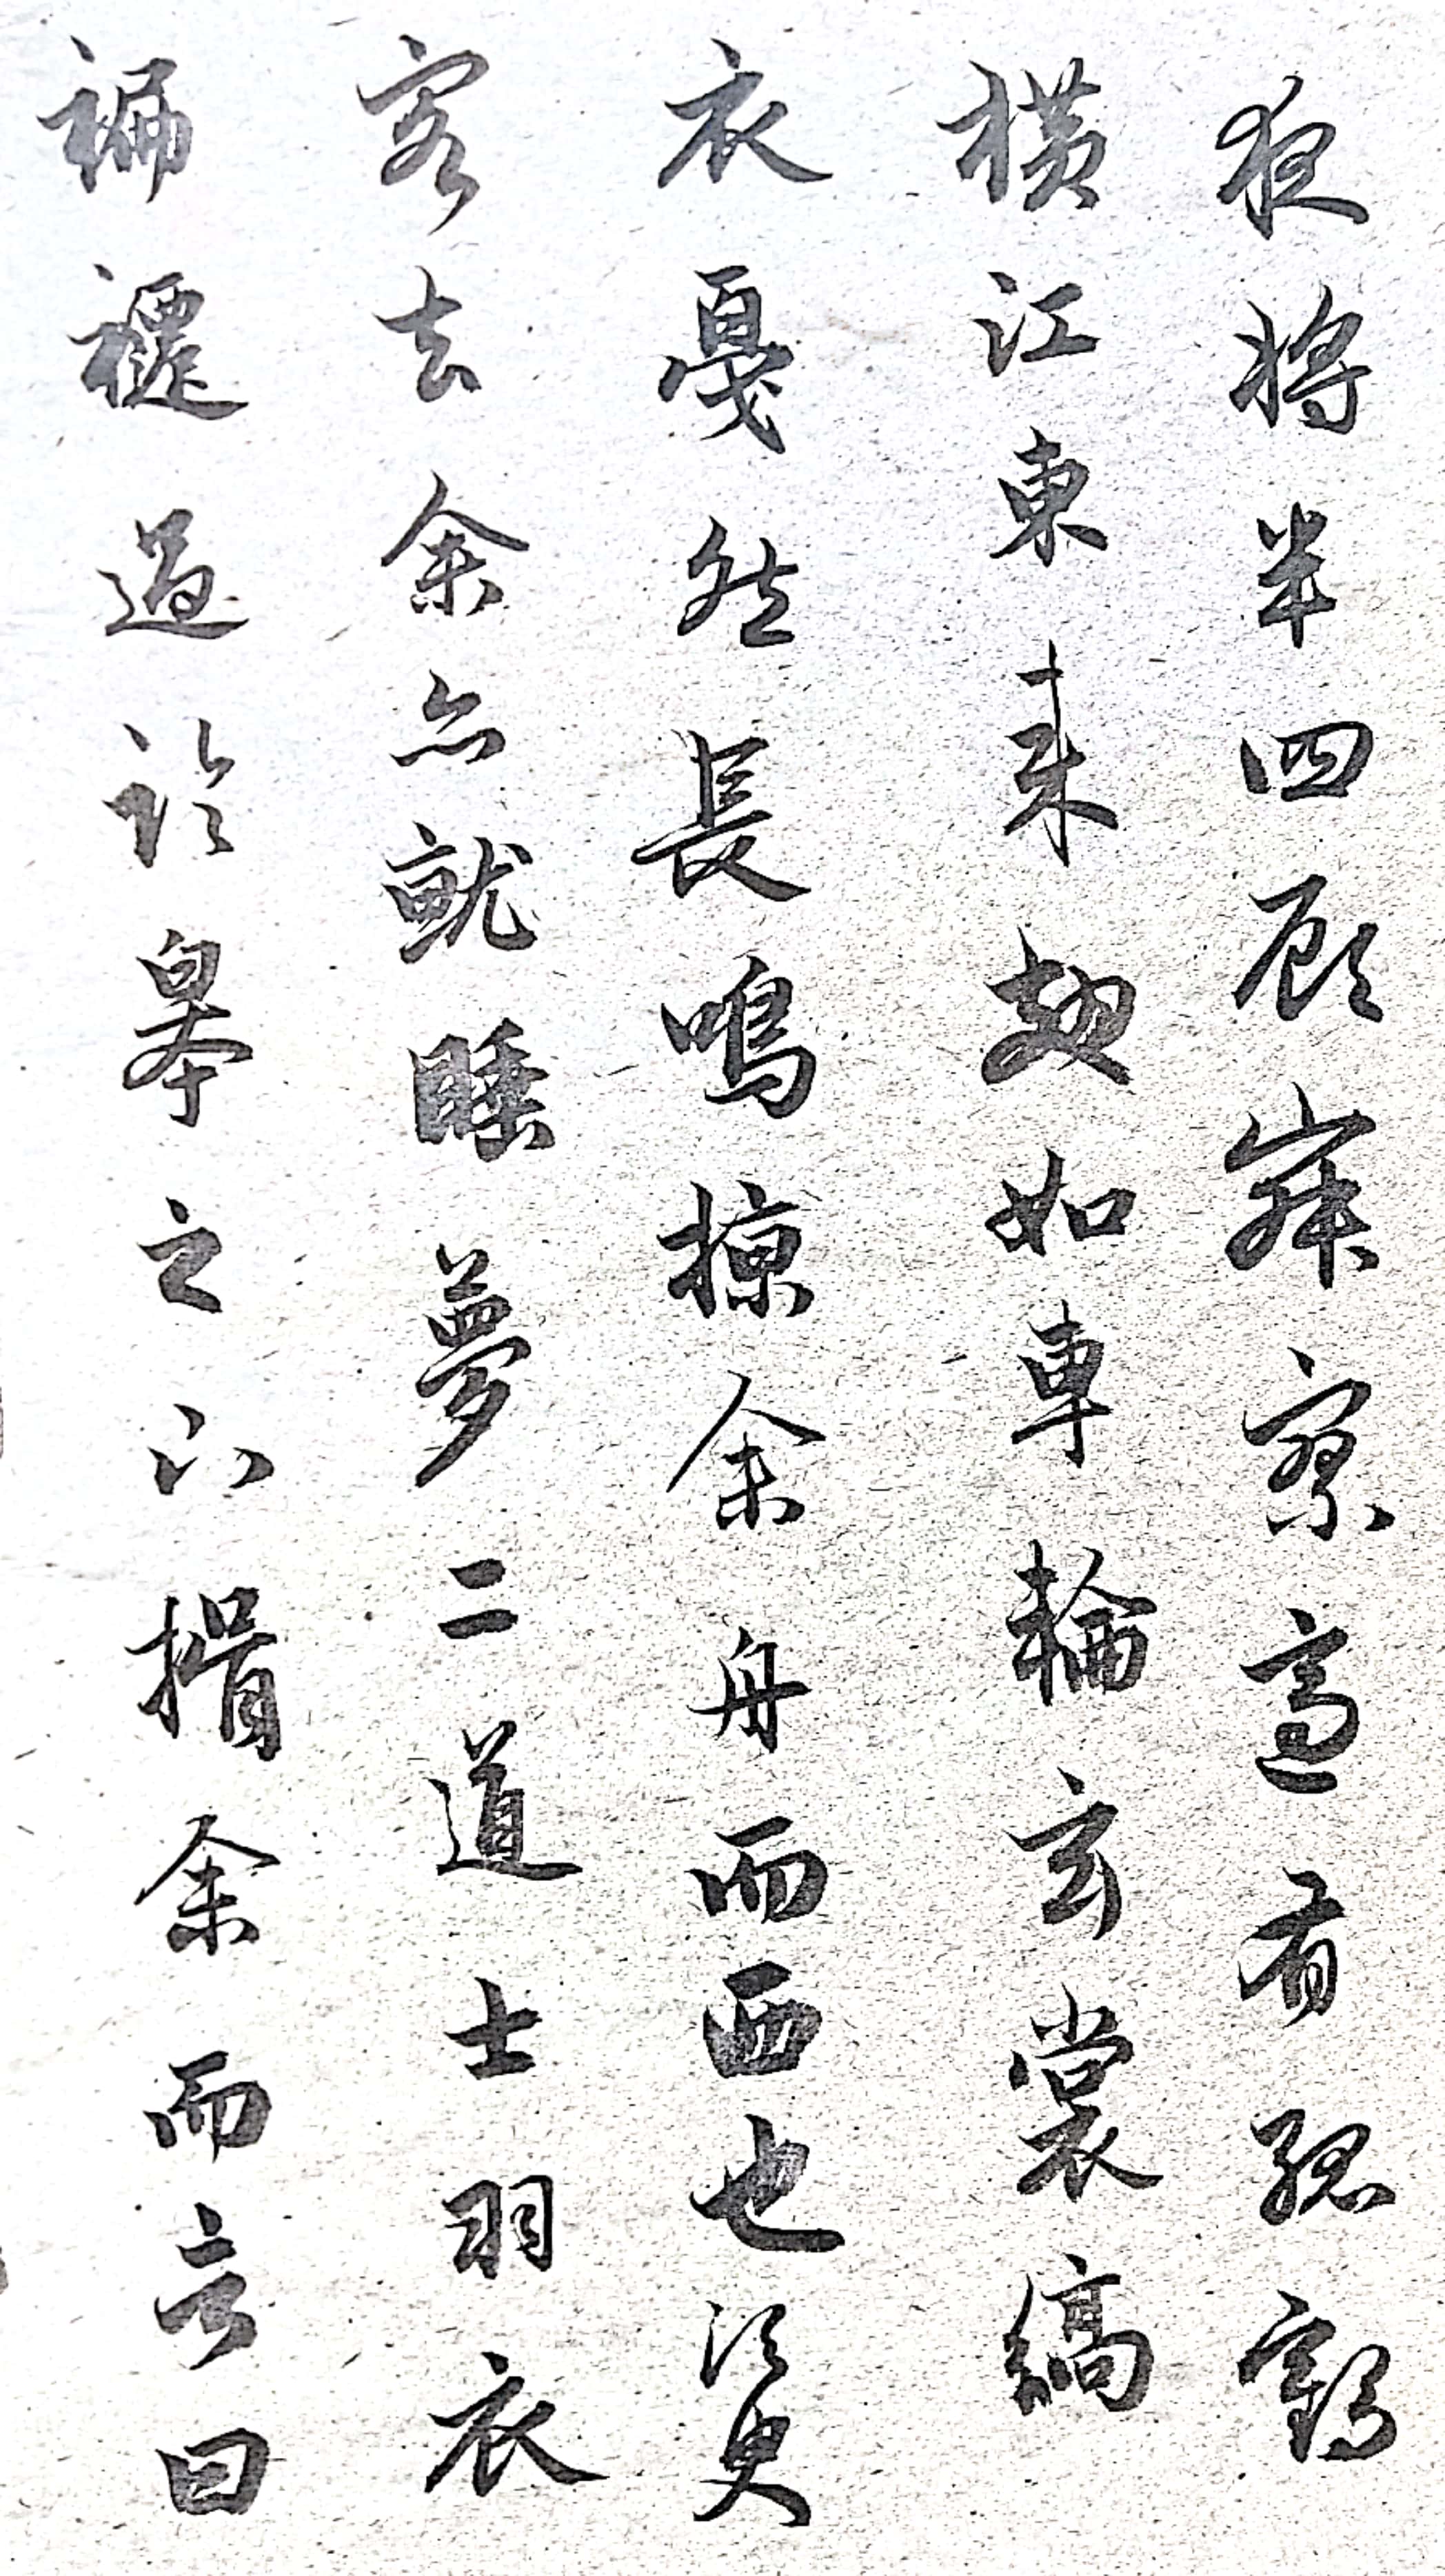 夜將半四顧寂寥適有孤鶴
橫江東來翅如車輪玄裳縞
衣戛然長鳴掠余舟而西也須臾
客去余亦就睡夢二道士羽衣
褊褼過臨皋之下揖余而言曰